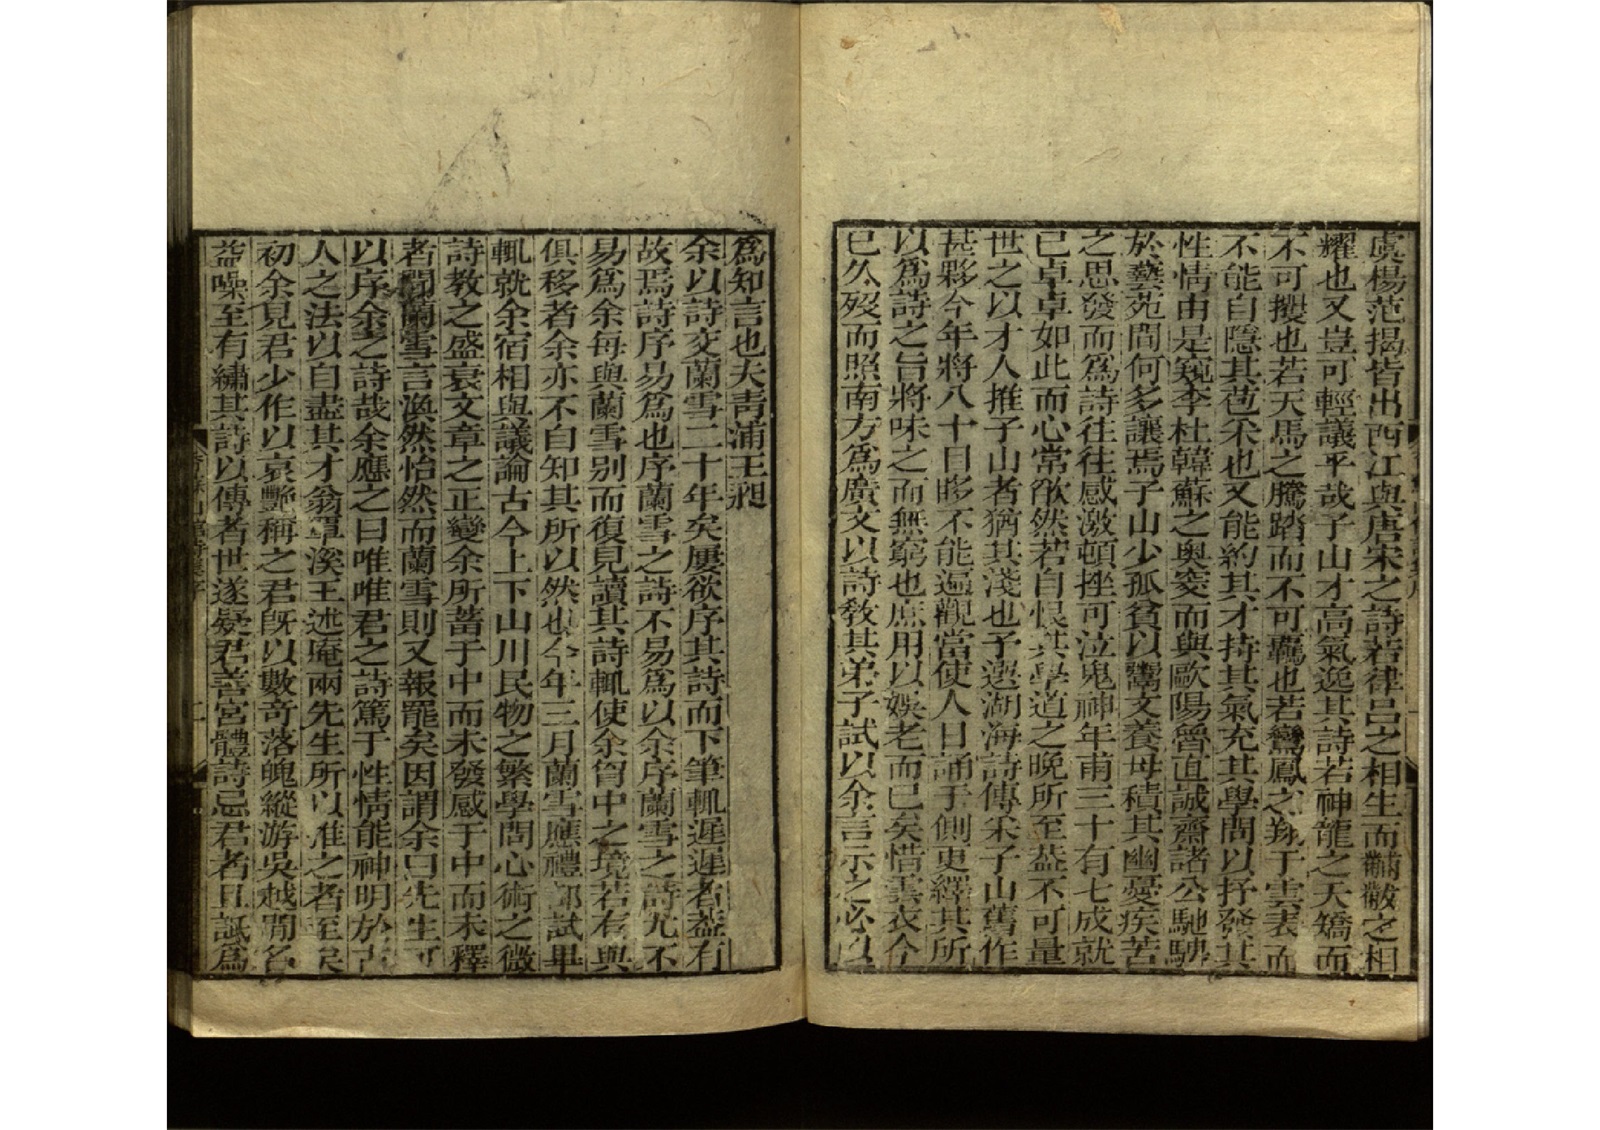 虞楊范揭皆出西江與唐宋之詩若律呂之相生而黼黻之相
耀也又豈可輕議乎哉子山才高氣逸其詩若神龍之夭矯而
不可攫也若天馬之騰踏而不可羈也若鸞鳳之翔于雲表而
不能自隱其苞采也又能約其才持其氣充其學問以抒發其
性情由是窺李杜韓蘇之奧窔而與歐陽魯直誠齋諸公馳騁
於藝苑間何多讓焉子山少孤貧以鬻文養母積其幽憂疾苦
之思發而爲詩往往感激頓挫可泣鬼神年甫三十有七成就
已卓卓如此而心常欿然若自恨其學道之晚所至葢不可量
世之以才人推子山者猶其淺也予選湖海詩傳采子山舊作
甚夥今年將八十目眵不能遍觀當使人日誦于側更繹其所
以爲詩之旨將味之而無窮也庶用以娛老而已矣惜雲衣今
已久歿而照南方爲廣文以詩敎其弟子試以余言示之必以
爲知言也夫青浦王昶
余以詩交蘭雪二十年矣屢欲序其詩而下筆輒遲遲者葢有
故焉詩序易爲也序蘭雪之詩不易爲以余序蘭雪之詩尤不
易爲余每與蘭雪别而復見讀其詩輒使余胷中之境若有與
俱移者余亦不自知其所以然也今年三月蘭雪應禮部試畢
輒就余宿相與議論古今上下山川民物之繁學問心術之微
詩教之盛衰文章之正變余所蓄于中而未發感于中而未釋
者聞蘭雪言渙然怡然而蘭雪則又報罷矣因謂余曰先生可
以序余之詩哉余應之曰唯唯君之詩篤于性情能神明於古
人之法以自盡其才翁覃溪王述庵兩先生所以推之者至矣
初余見君少作以哀艷稱之君旣以數奇落魄縱游吳越間名
益噪至有繡其詩以傳者世遂疑君善宮體詩忌君者且詆爲